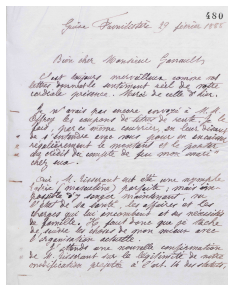 480
Guise Familistère 29 février 1888
Bien cher Monsieur Ganault,
C'est toujours merveilleux comme vos
lettres donnent le sentiment réel de votre
cordiale présence. Merci de celle d'hier.
Je n'avais pas encore envoyé à M.
les coupons de lettres de
fait, par ce même courrier, en leur
de s'entendre avec vous pour en encaisser
régulièrement le montant et le porter
au crédit du compte de feu mon mari
chez eux.
Oui, M. Tisserant eut été une
(instruction) parfaite, mais
possible d'y songer maintenant, vu
l'état de sa santé, les affaires et les
charges qui lui incombent et ses nécessités
de famille. Il faut donc que je tâche
de suivre les choses de mon mieux avec
l'organisation actuelle.
J'attends une nouvelle confirmation
de M. Tisserant sur la légitimité de notre
modification projetée à l'art. 14 des statuts,